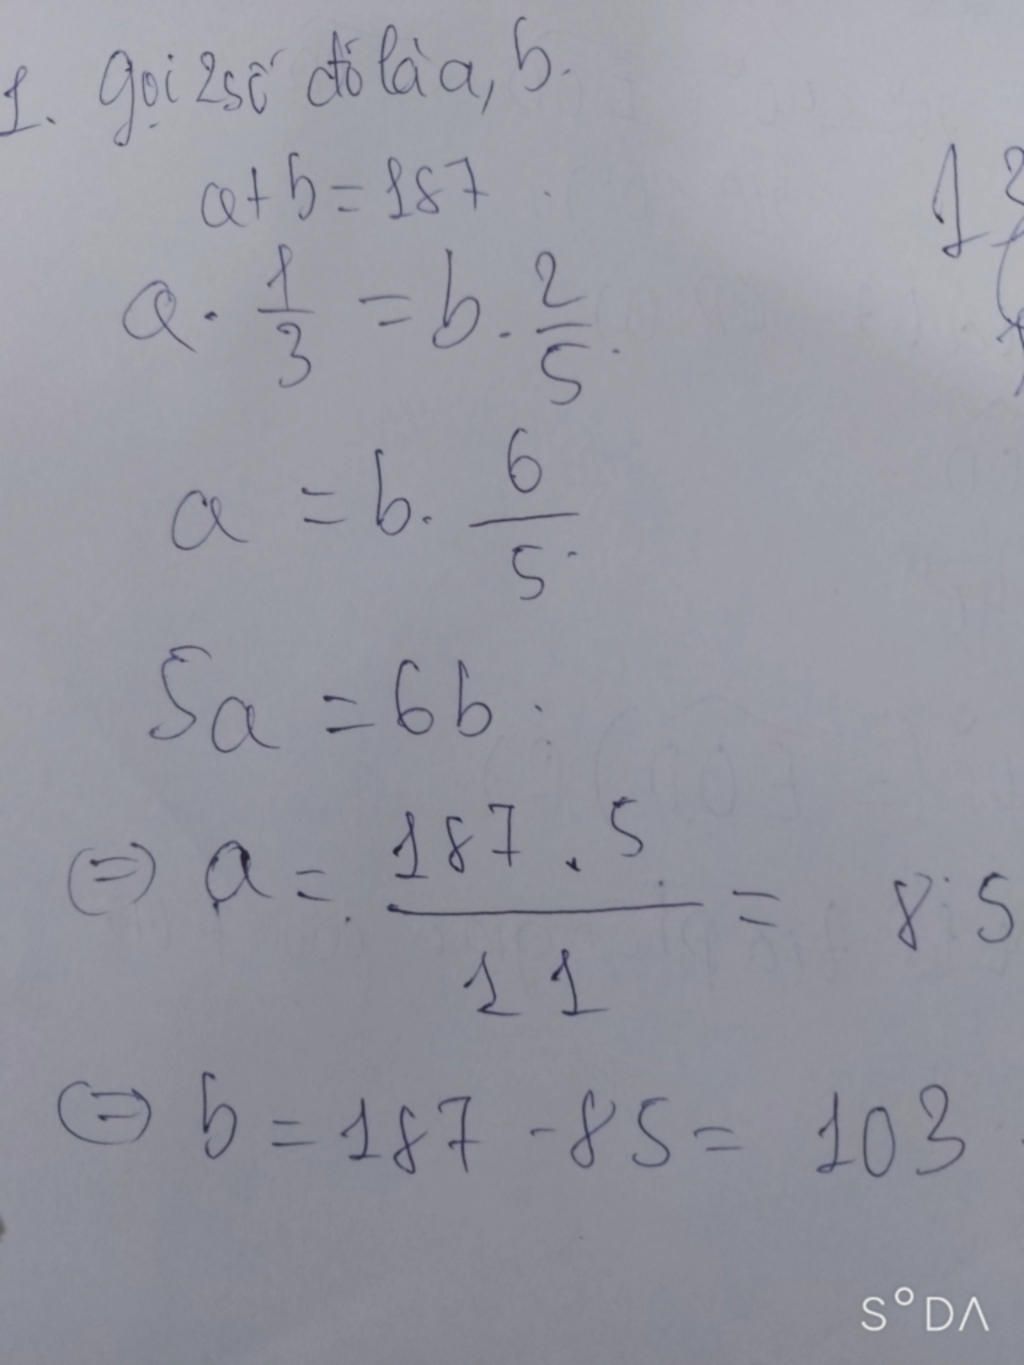 1. Gọi 2 số đó là a, b.
a + b = 187
a . 1/3 = b . 2/5.
a = b . 6/5.
5a = 6b.
(=) a = 187 . 5 / 11 = 85
(=) b = 187 - 85 = 103
S°DΛ